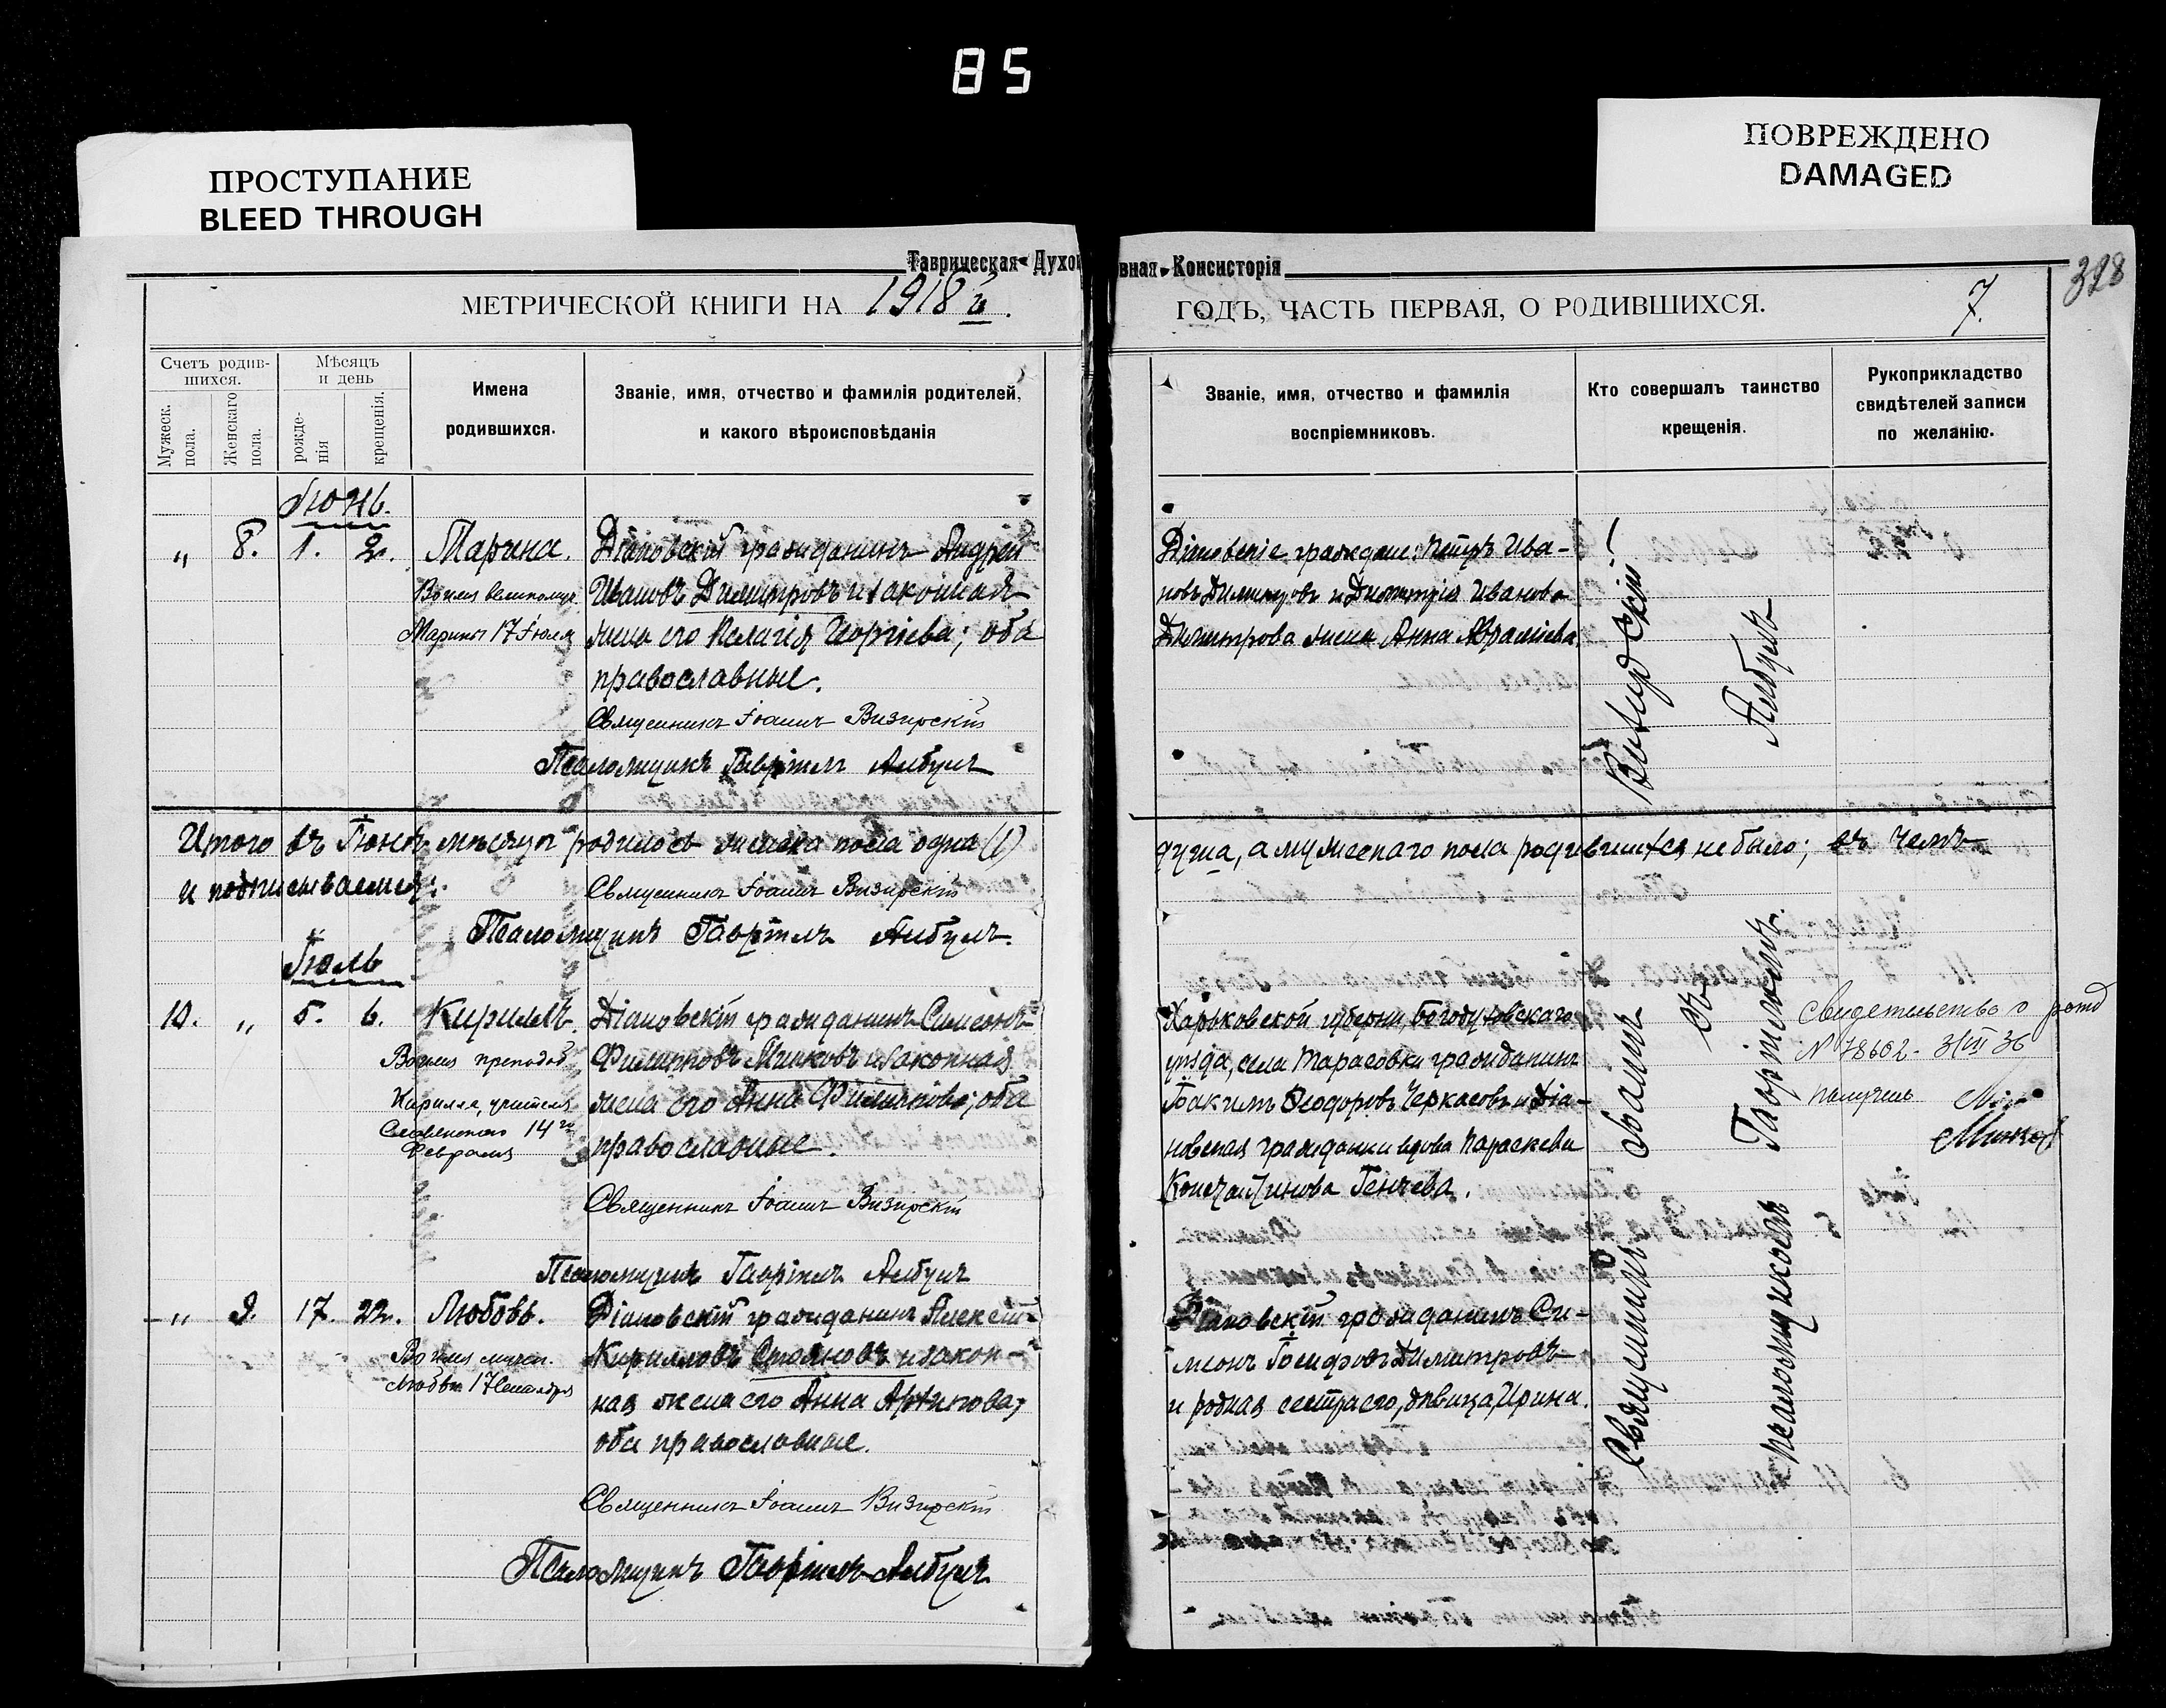 85
ПРОСТУПАНИЕ
BLEED THROUGH
ПОВРЕЖДЕНО
DAMAGED
Таврическая Духовная Консисторія
328
МЕТРИЧЕСКОЙ КНИГИ НА 1918й ГОДЪ, ЧАСТЬ ПЕРВАЯ, О РОДИВШИХСЯ. 7.
Счетъ родив-
шихся.
Мужеск.
пола.
Женскаго
пола.
Мѣсяцъ
и день
рожде-
нія
крещенія.
Имена
родившихся.
Званіе, имя, отчество и фамилія родителей,
и какого вѣроисповѣданія
Званіе, имя, отчество и фамилія
воспріемниковъ.
Кто совершалъ таинство
крещенія.
Рукоприкладство
свидѣтелей записи
по желанію.
Іюнь.
„ 8. 1. 2. Марина.
Во имя великомуч.
Марины 17 Іюля
Діановскій гражданинъ Андрей
Ивановъ Димитровъ и законная
жена его Пелагія Георгіева; оба
православные.
Священникъ Іоаннъ Визирскій
Псаломщикъ Гавріилъ Албулъ
Діановскіе граждане: Петръ Ива-
новъ Димитровъ и Димитрія Иванова
Димитрова жена Анна Авраміева.
Итого въ Іюнѣ мѣсяцѣ родилось женска пола одна (1)
душа, а мужескаго пола родившихся не было; въ чемъ
и подписываемся:
Священникъ Іоаннъ Визирскій
Псаломщикъ Гавріилъ Албулъ.
Іюль
10. „ 5. 6. Кириллъ.
Во имя преподоб.
Кирилла, учителя
Славенскаго 14го
Февраля
Діановскій гражданинъ Симеонъ
Филипповъ Минковъ и законная
жена его Анна Филиппова; оба
православные.
Священникъ Іоаннъ Визирскій
Псаломщикъ Гавріилъ Албулъ
Харьковской губерніи, Богодуховскаго
уѣзда, села Тарасовки гражданинъ
Іоакимъ Ѳеодоровъ Черкасовъ и Діа-
новская гражданка вдова Параскева
Константинова Генчева.
Свидетельство о рожд
N 78602 - 31 III 36
получил
Минков
„ 9. 17. 22. Любовь.
Во имя мучен.
Любви 17 Сентября
Діановскій гражданинъ Алексій
Кирилловъ Стояновъ и закон-
ная жена его Анна Архипова;
оба православные.
Священникъ Іоаннъ Визирскій
Псаломщикъ Гавріилъ Албулъ
Діановскій гражданинъ Си-
меонъ Іосифовъ Димитровъ
и родная сестра его, дѣвица, Ирина.
Священникъ Іоаннъ Визирскій
съ
псаломщикомъ Гавріиломъ Албулъ